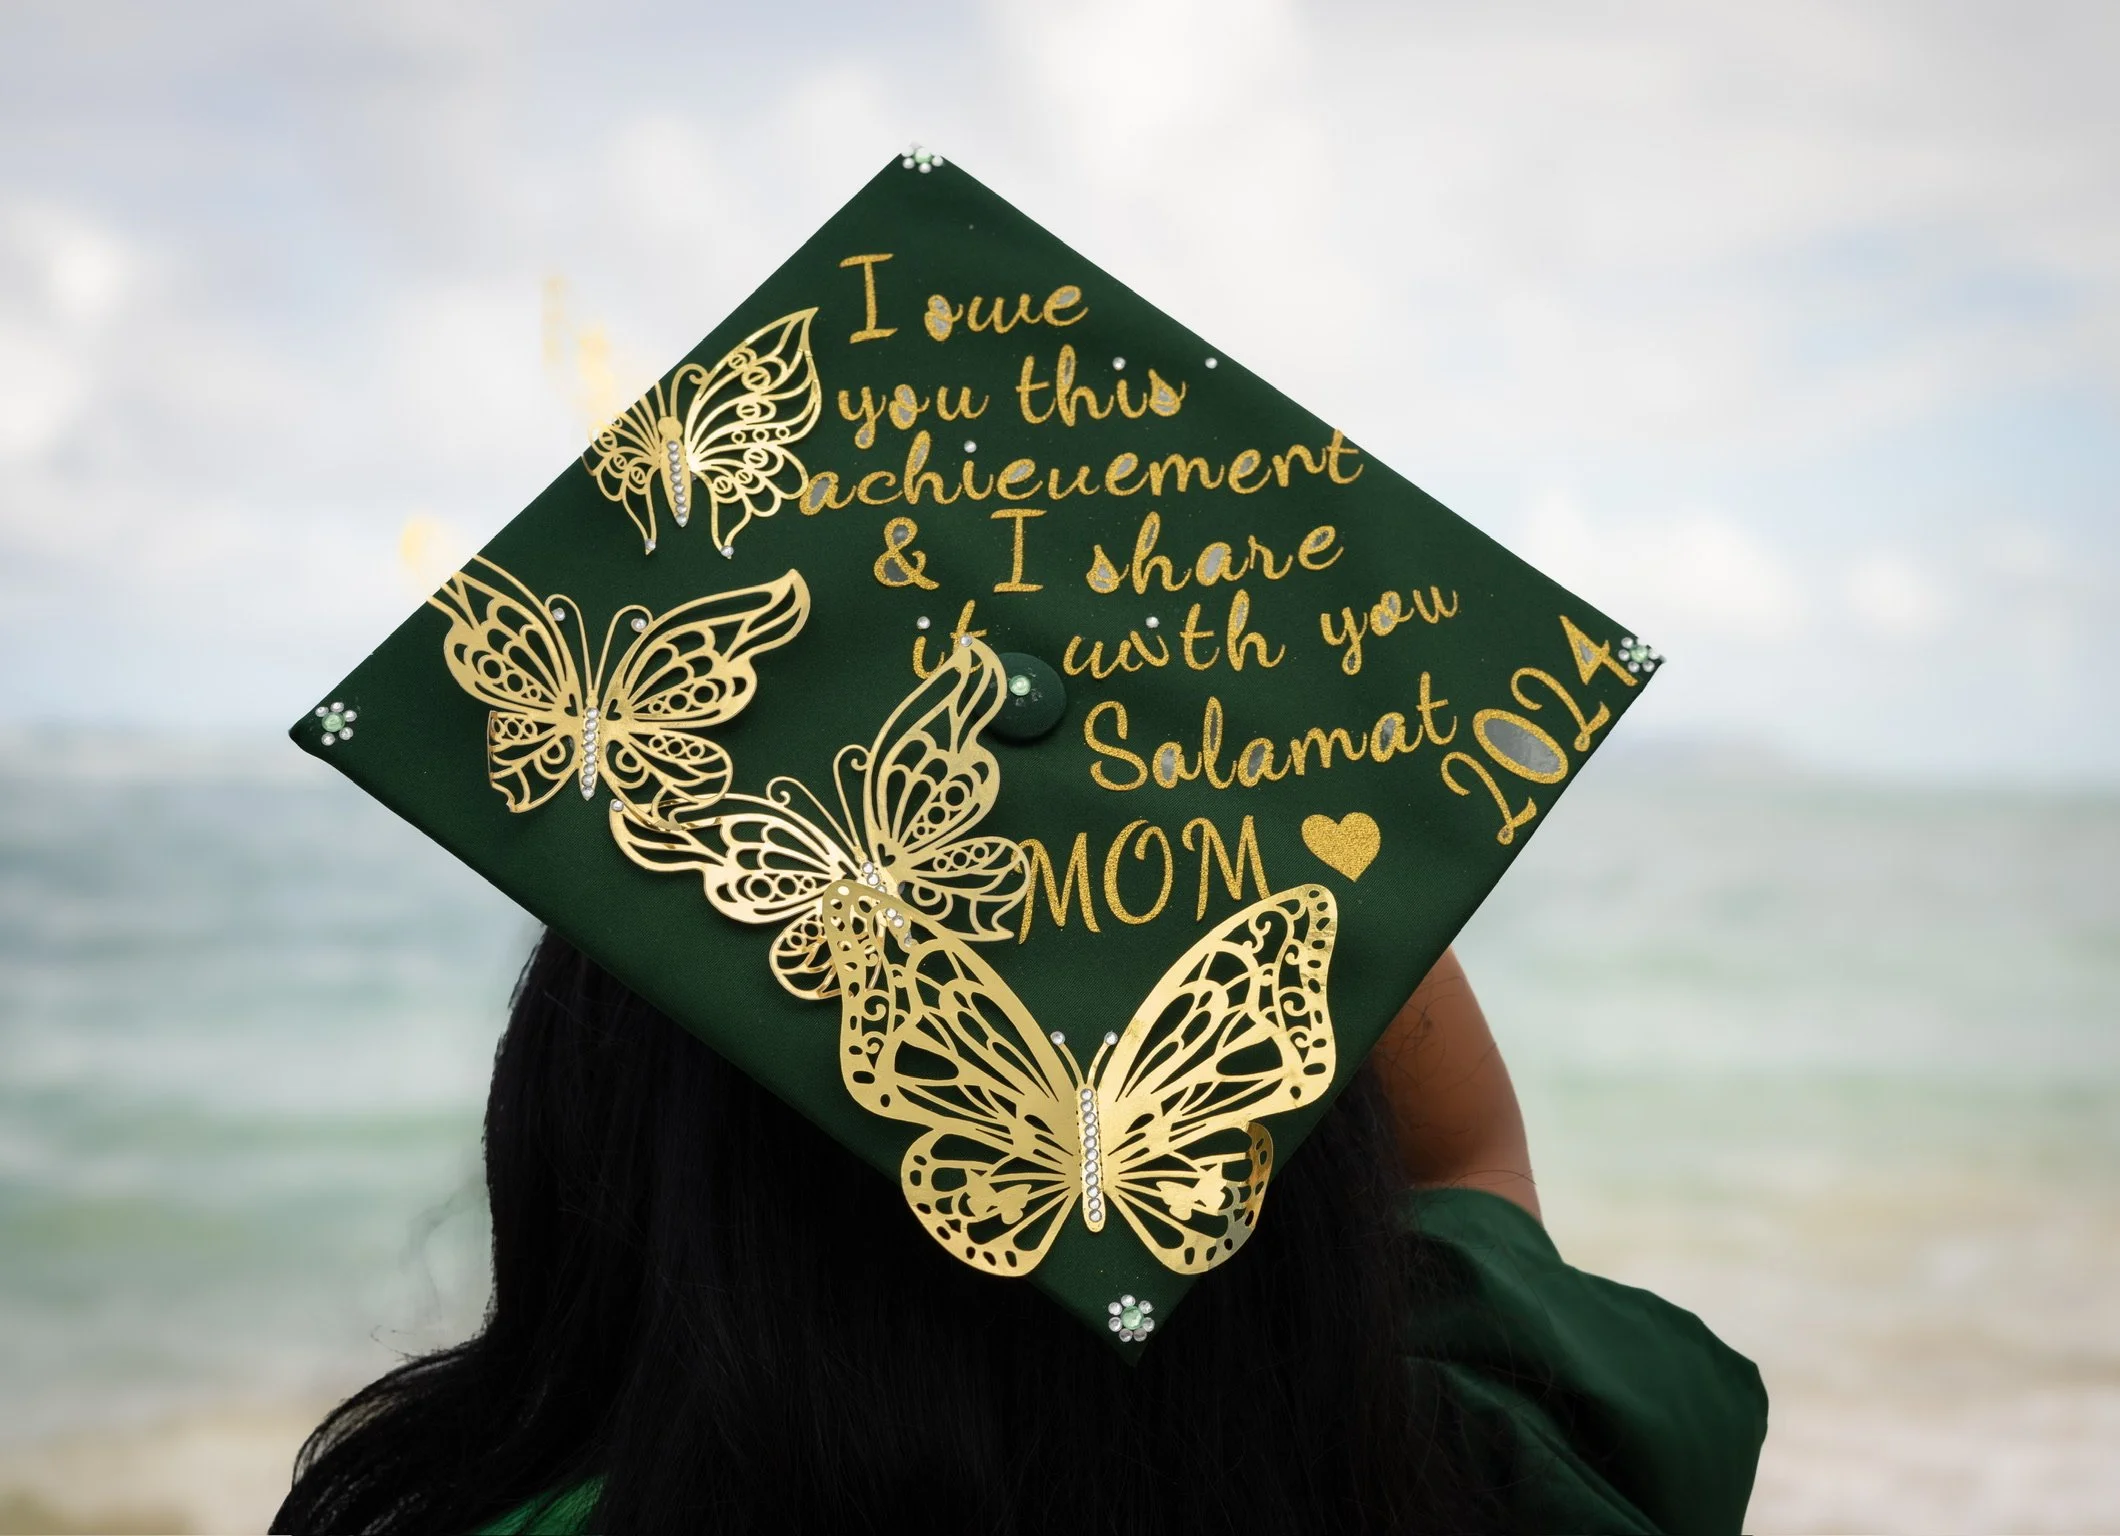 I owe
you this
achievement
& I share
it with you
Salamat
MOM
2024